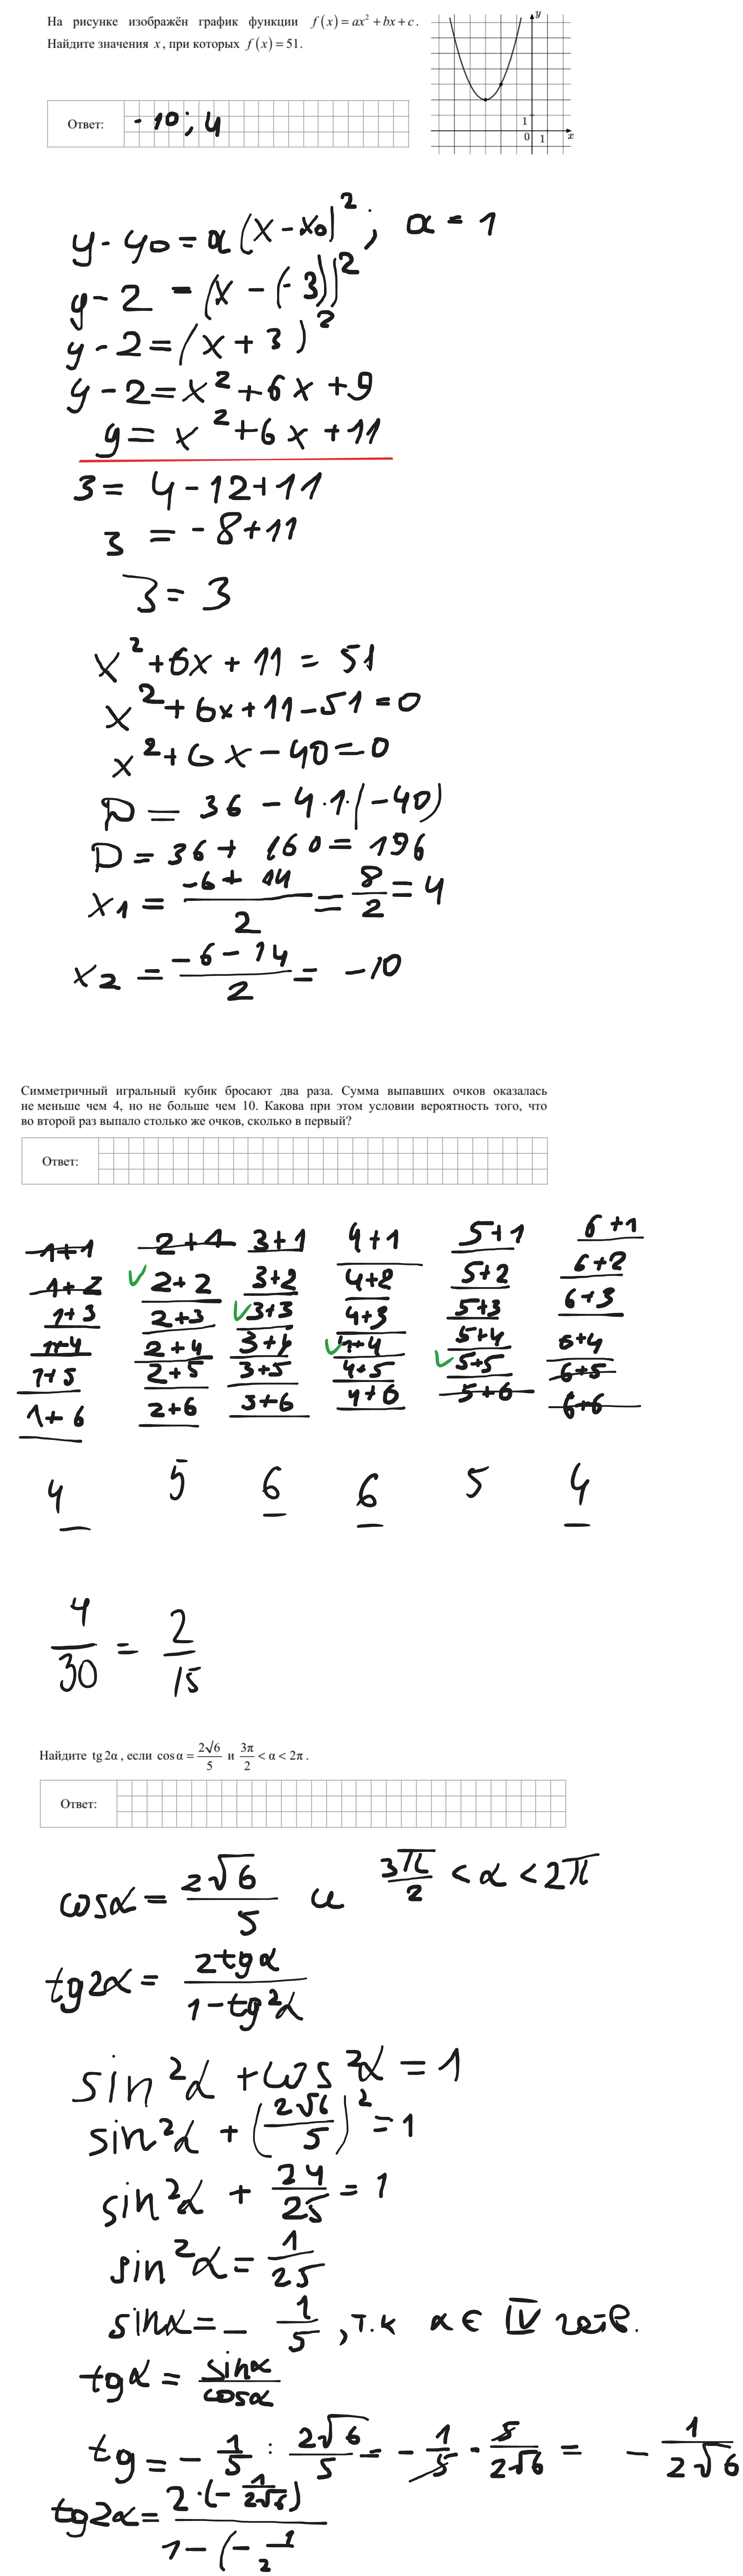 На рисунке изображён график функции f(x)=ax²+bx+c.
Найдите значения x, при которых f(x)=51.
y
1
0 1 x
Ответ: -10; 4
y - y₀ = a(x - x₀)²; a = 1
y - 2 = (x - (-3))²
y - 2 = (x + 3)²
y - 2 = x² + 6x + 9
y = x² + 6x + 11
3 = 4 - 12 + 11
3 = -8 + 11
3 = 3
x² + 6x + 11 = 51
x² + 6x + 11 - 51 = 0
x² + 6x - 40 = 0
D = 36 - 4·1·(-40)
D = 36 + 160 = 196
x₁ = (-6 + 14)/2 = 8/2 = 4
x₂ = (-6 - 14)/2 = -10
Симметричный игральный кубик бросают два раза. Сумма выпавших очков оказалась
не меньше чем 4, но не больше чем 10. Какова при этом условии вероятность того, что
во второй раз выпало столько же очков, сколько в первый?
Ответ:
1+1 2+1 3+1 4+1 5+1 6+1
1+2 ✓ 2+2 3+2 4+2 5+2 6+2
1+3 2+3 ✓ 3+3 4+3 5+3 6+3
1+4 2+4 3+4 ✓ 4+4 5+4 6+4
1+5 2+5 3+5 4+5 ✓ 5+5 6+5
1+6 2+6 3+6 4+6 5+6 6+6
4 5 6 6 5 4
4/30 = 2/15
Найдите tg2α, если cosα = 2√6/5 и 3π/2 < α < 2π.
Ответ:
cosα = 2√6/5 и 3π/2 < α < 2π
tg2α = 2tgα/(1 - tg²α)
sin²α + cos²α = 1
sin²α + (2√6/5)² = 1
sin²α + 24/25 = 1
sin²α = 1/25
sinα = - 1/5, т.к α ∈ IV четв.
tgα = sinα/cosα
tg = - 1/5 : 2√6/5 = - 1/5 · 5/2√6 = - 1/2√6
tg2α = 2·(- 1/2√6)/1 - (- 1/2